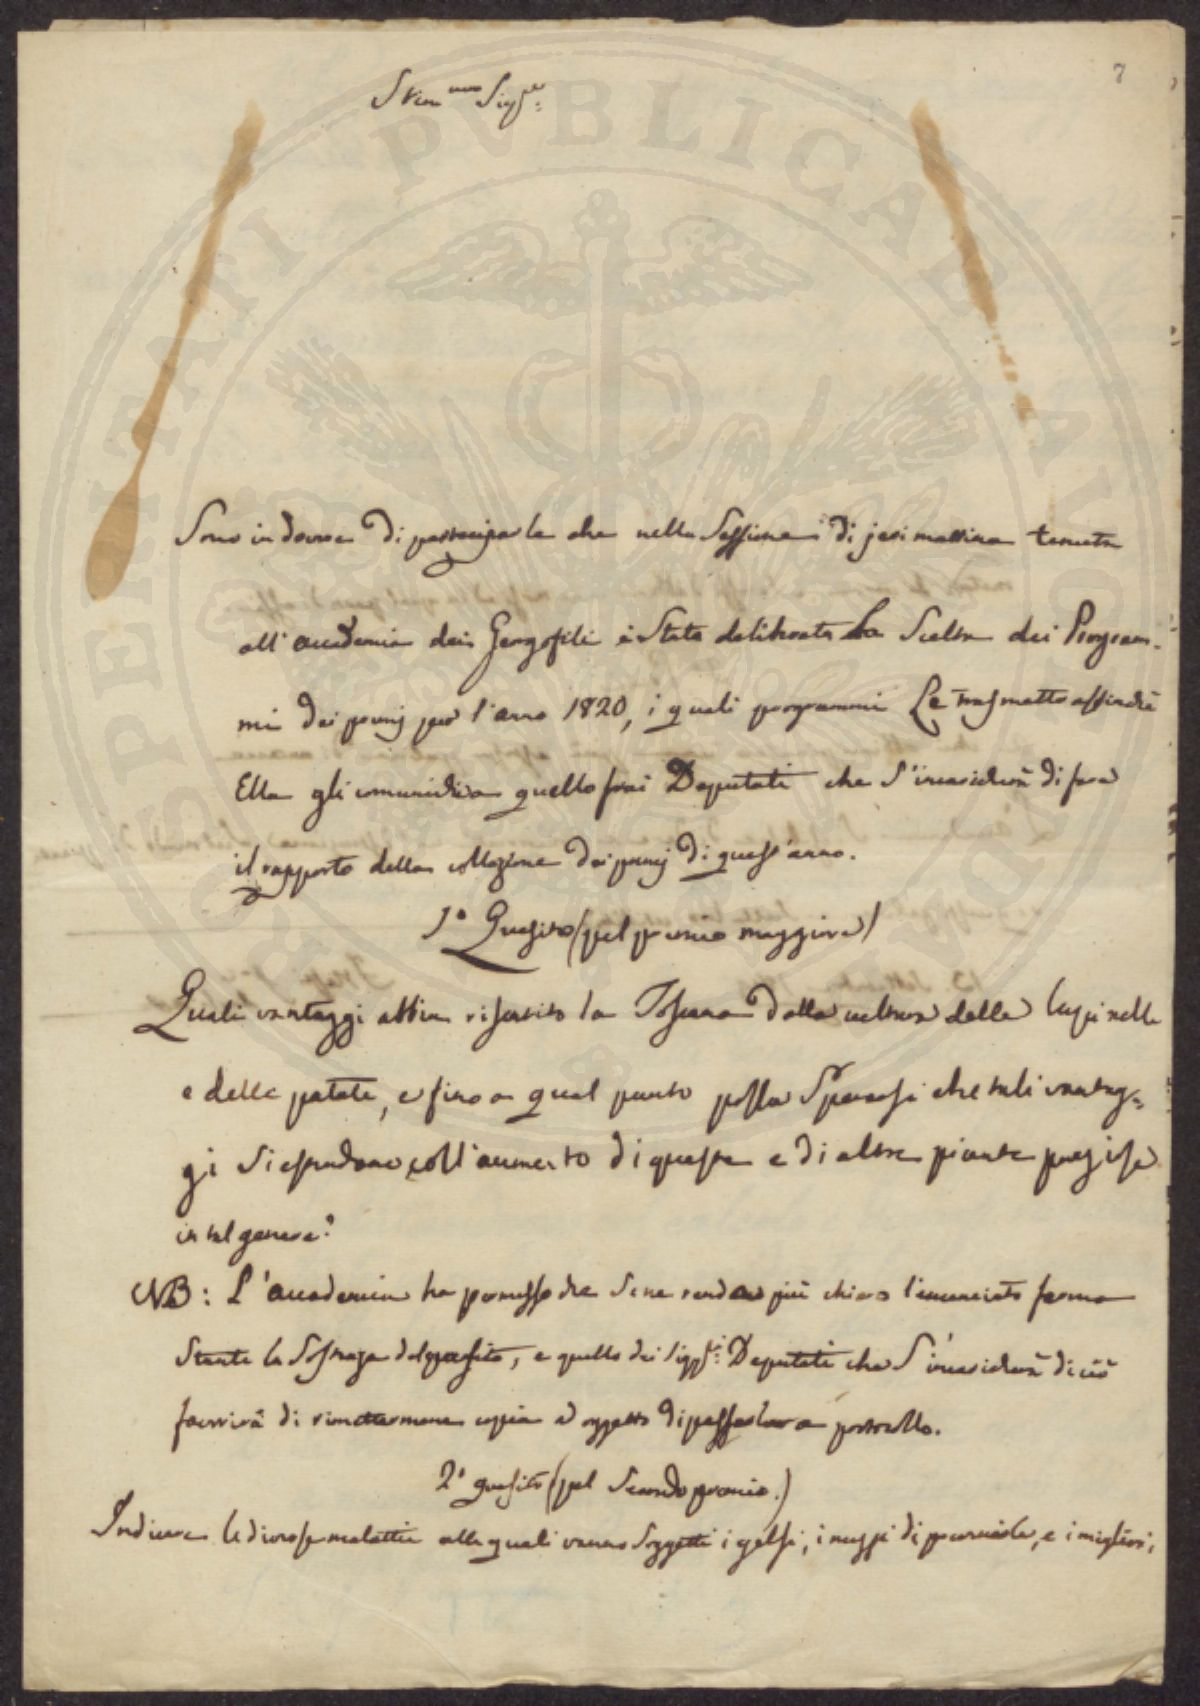 7
Stim.mo Sig.re
Sono in dovere di parteciparle che nella Sessione di jeri mattina tenuta
all'accademia dei Georgofili è Stata deliberata La Scelta dei Program-
mi dei premj per l'anno 1820, i quali programmi Le trasmetto affinchè
Ella gli comunichi a quello frai Deputati che S'incaricherà di fare
il rapporto della collazione dei premj di quest'anno.
1º Quesito (pel premio maggiore)
Quali vantaggi abbia risentito la Toscana dalla cultura delle lupinelle
e delle patate, e fino a qual punto possa Sperarsi che tali vantag=
gi Si estendano coll'aumento di queste e di altre piante preziose
in tal genere?
NB: L'accademia ha permesso che Se ne renda più chiaro l'enunciato ferma
Stante la Sostanza del quesito, e quello dei Sigg.ri Deputati che S'incaricherà di ciò
favorirà di rimettermene copia ad oggetto di passarlo a protocollo.
2º quesito (pel Secondo premio.)
Indicare le diverse malattie alle quali vanno Soggetti i gelsi, i mezzi di prevenirle, e i migliori,
PROSPERITATI PVBLICAE AVGENDAE